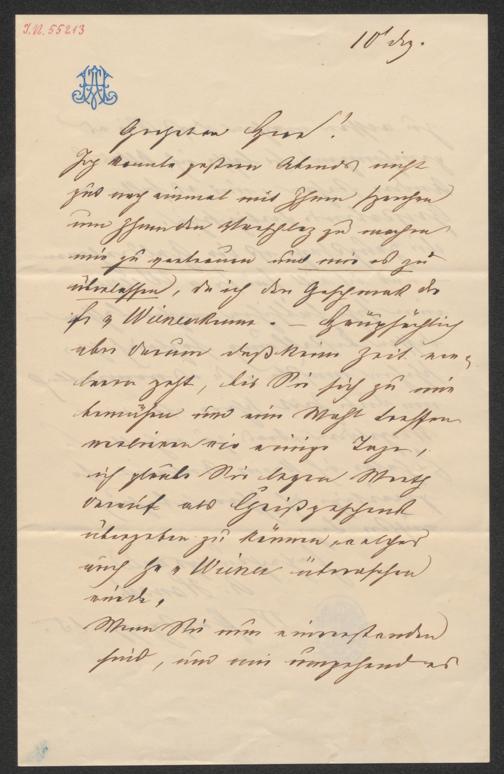 I.N. 55213
10t dez.
Geehrter Herr!
Ich konnte gestern Abends nicht
noch einmal mit Ihnen sprechen
um Ihnen den Vorschlag zu machen
mir zu vertrauen und mir es zu
überlassen, da ich den Geschmack der
Fr v Wiener kenne. – Hauptsächlich
aber darum daß keine Zeit ver-
loren geht, bis Sie sich zu mir
bemühen und eine Wahl treffen
verlieren wir einige Tage,
ich glaube Sie legen Werth
darauf als Christgeschenk
übergeben zu können, welches
auch H v Wiener überraschen
würde.
Wenn Sie nun einverstanden
sind, und mir umgehend es